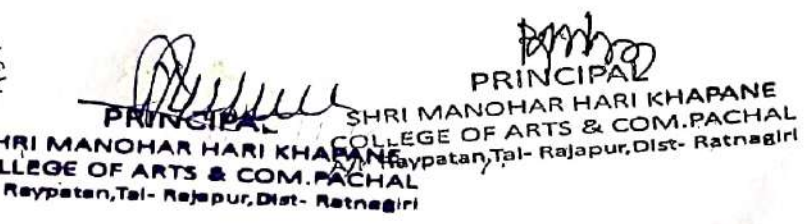 PRINCIPAL
SHRI MANOHAR HARI KHAPANE
COLLEGE OF ARTS & COM.PACHAL
Raypatan,Tal- Rajapur,Dist- Ratnagiri
PRINCIPAL
HRI MANOHAR HARI KHAPANE
LLEGE OF ARTS & COM.PACHAL
Raypatan,Tal- Rajapur,Dist- Ratnagiri